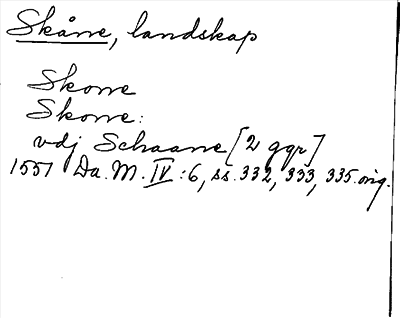 Skåne, landskap
Skone
Skone:
vdj Schaane [2 ggr]
1551 Da. M. IV:6, ss. 332, 333, 335. orig.